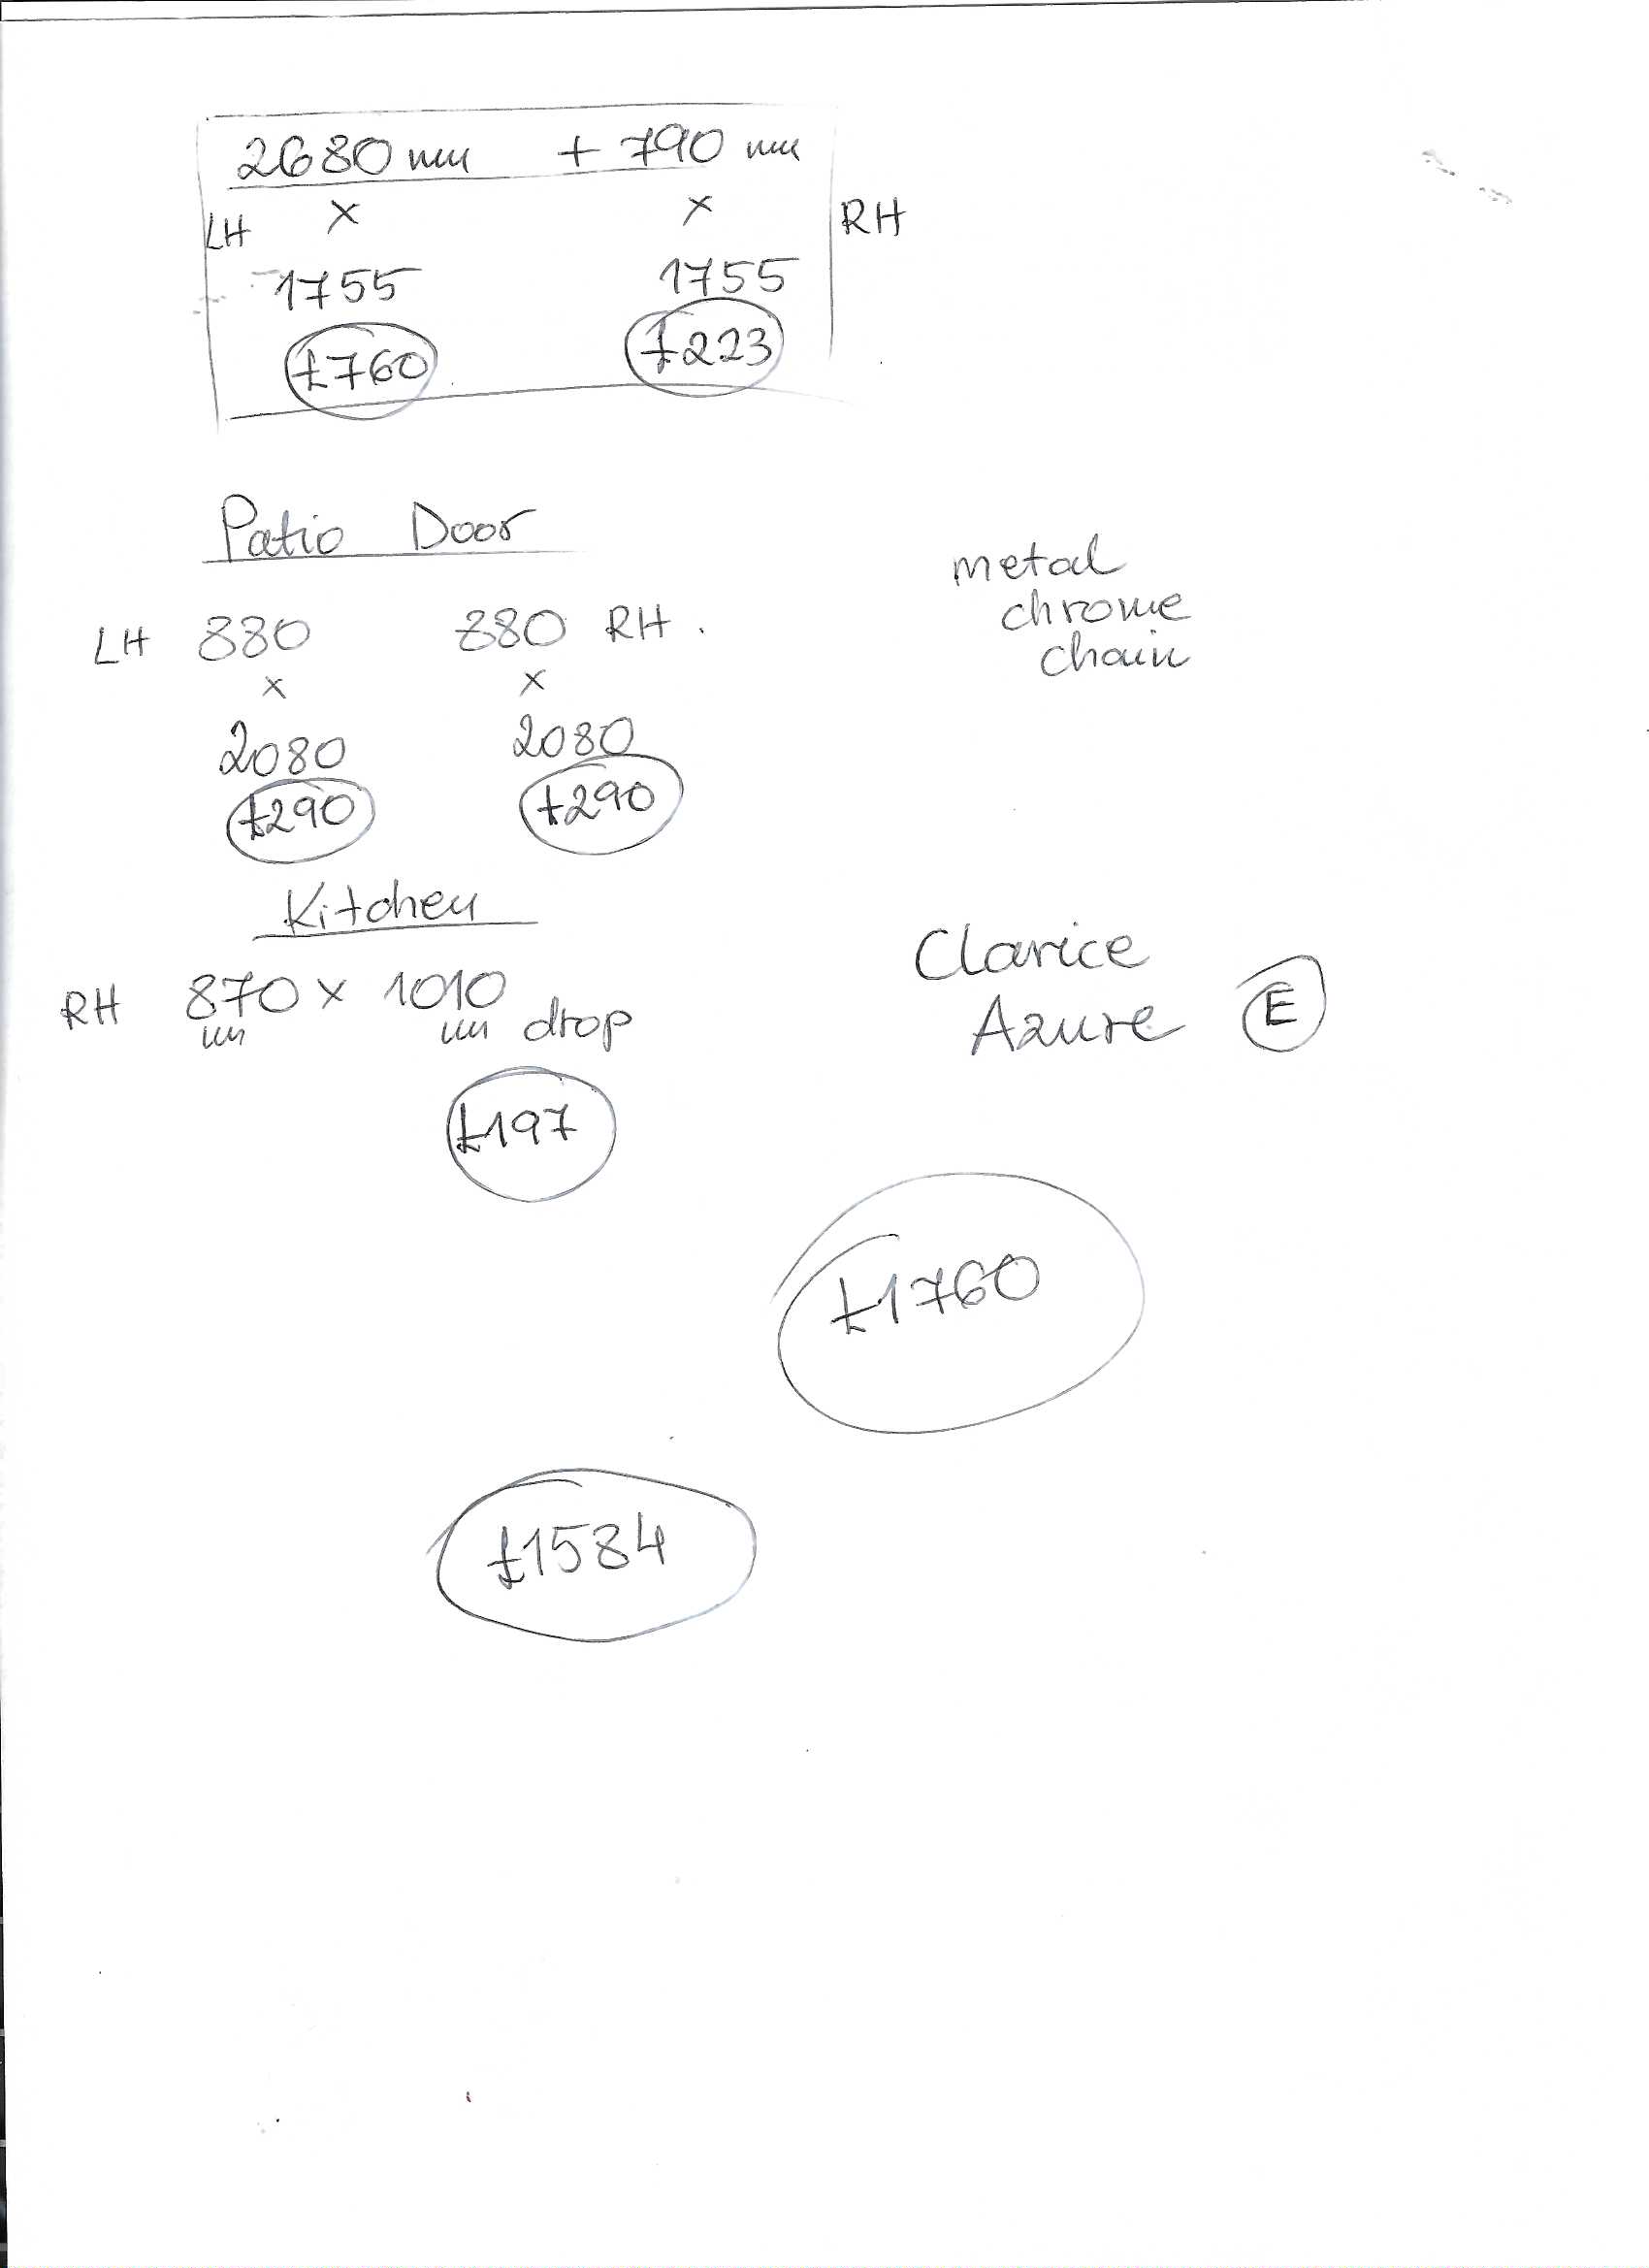 2680 mm + 790 mm
LH x x RH
1755 1755
£760 £223
Patio Door
metal
chrome
chain
LH 880 880 RH.
x x
2080 2080
£290 £290
Kitchen
Clarice
Azure E
RH 870 x 1010
mm mm drop
£197
£1760
£1584